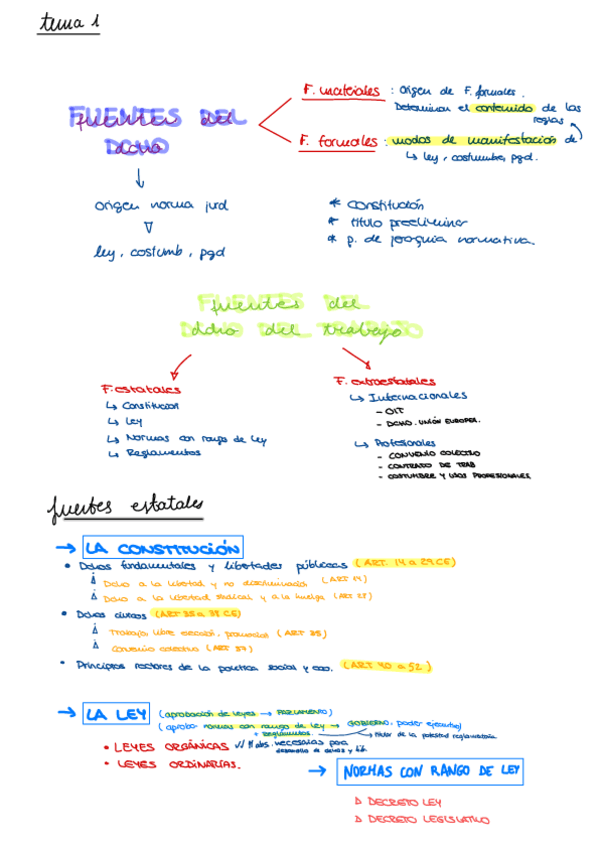 tema 1
FUENTES DEL
DCHO
fuentes del
dcho
F. materiales : Origen de F. formales.
Determinan el contenido de las
reglas
F. formales : modos de manifestación de
↳ ley, costumbre, pgd.
origen norma jurd
ley, costumb, pgd
* Constitución
* titulo preeliminar
* p. de jerarquia normativa.
FUENTES DEL
DCHO DEL TRABAJO
fuentes del
dcho del trabajo
F. estatales
↳ Constitucion
↳ Ley
↳ Normas con rango de ley
↳ Reglamentos
F. extraestatales
↳ Internacionales
- OIT
- DCHO. UNIÓN EUROPEA.
↳ Profesionales
- CONVENIO COLECTIVO
- CONTRATO DE TRAB
- COSTUMBRE Y USOS PROFESIONALES
fuentes estatales
→ LA CONSTITUCIÓN
• Dchos fundamentales y libertades públicas (ART. 14 a 29 CE)
Dcho a la libertad y no discriminación (ART 14)
Dcho a la libertad sindical y a la huelga (ART 28)
• Dchos civicos (ART 35 a 38 CE)
Trabajo, libre elección, promocion (ART 35)
Convenio colectivo (ART 37)
• Principios rectores de la politica social y eco. (ART 40 a 52)
→ LA LEY (aprobación de leyes → PARLAMENTO)
(aprobar normas con rango de ley → GOBIERNO, poder ejecutivo)
+ Reglamentos. titular de la potestad reglamentaria
• LEYES ORGÁNICAS // abs. necesarias para
desarrollo de dchos y lib.
• LEYES ORDINARIAS.
→ NORMAS CON RANGO DE LEY
DECRETO LEY
DECRETO LEGISLATIVO